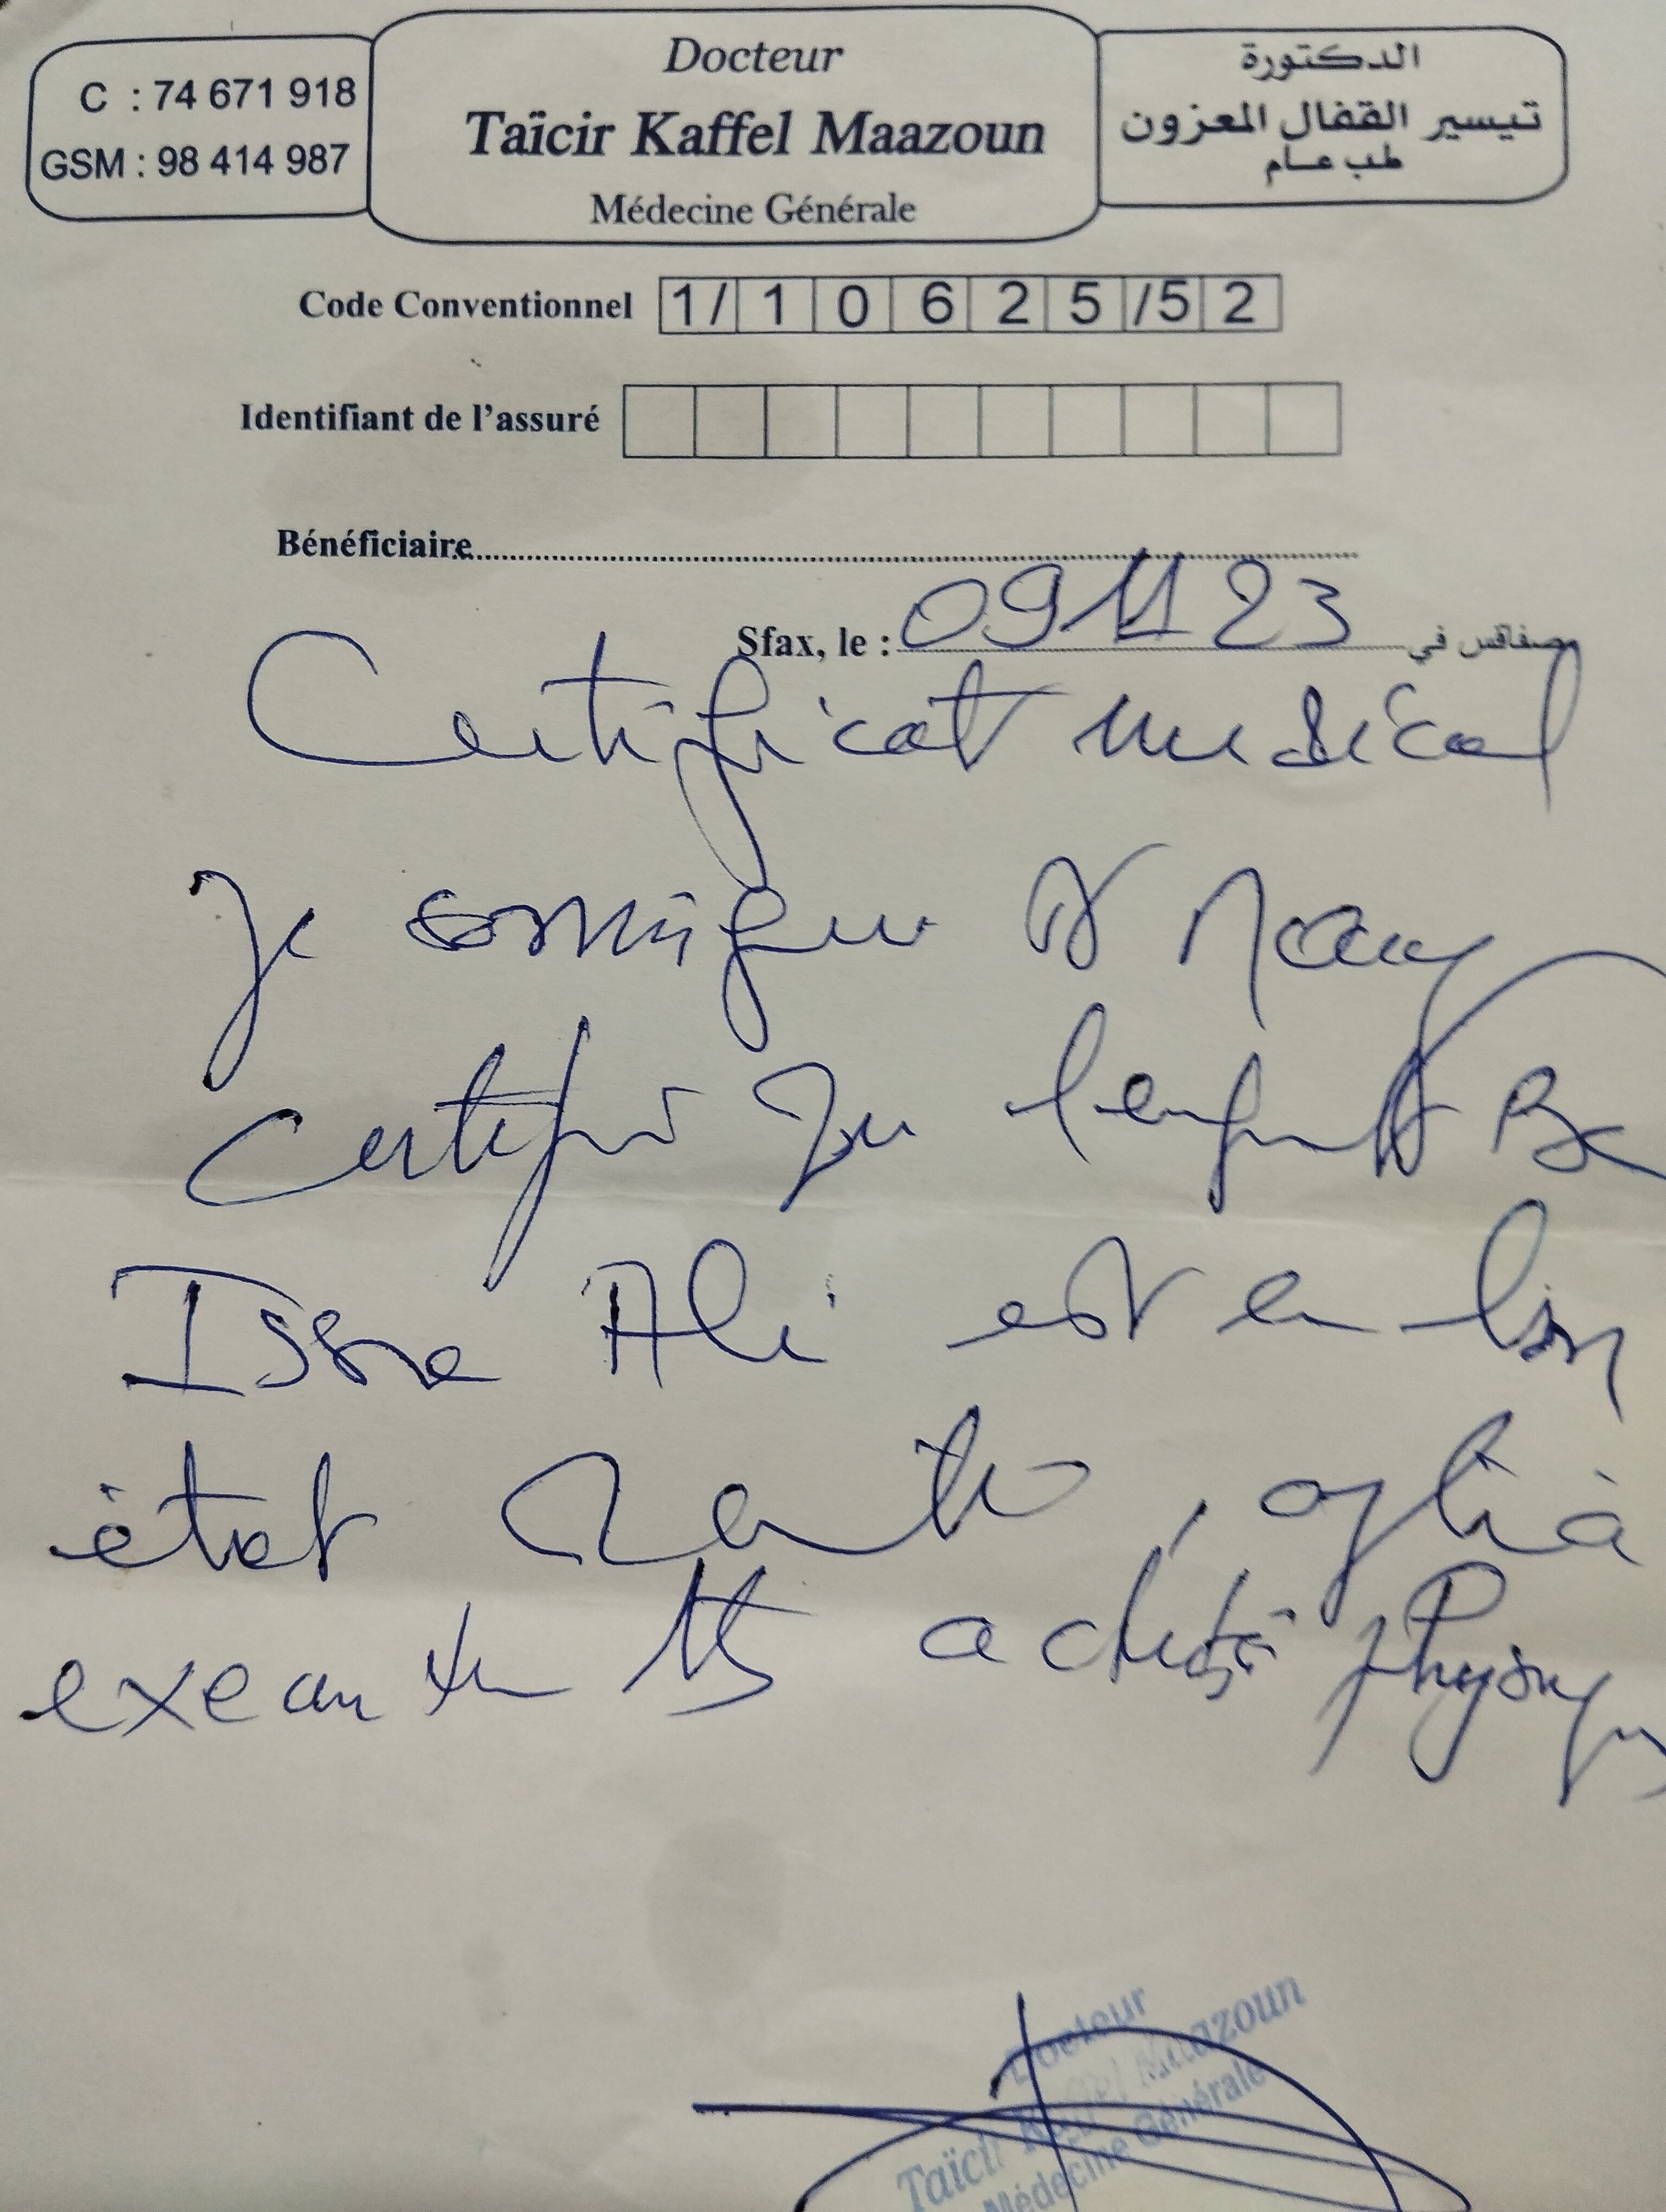 C : 74 671 918
GSM : 98 414 987
Docteur
Taïcir Kaffel Maazoun
Médecine Générale
الدكتورة
تيسير القفال المعزون
طب عام
Code Conventionnel 1/ 1 0 6 2 5 /5 2
Identifiant de l'assuré
Bénéficiaire
Sfax, le : 09 11 23 صفاقس في
Certificat medical
Je soussigné Dr
certifie que l'enfant Be
Issra Ali est en bon
état santé, apte à
activité physique
Docteur
Taïcir Kaffel Maazoun
Médecine Générale